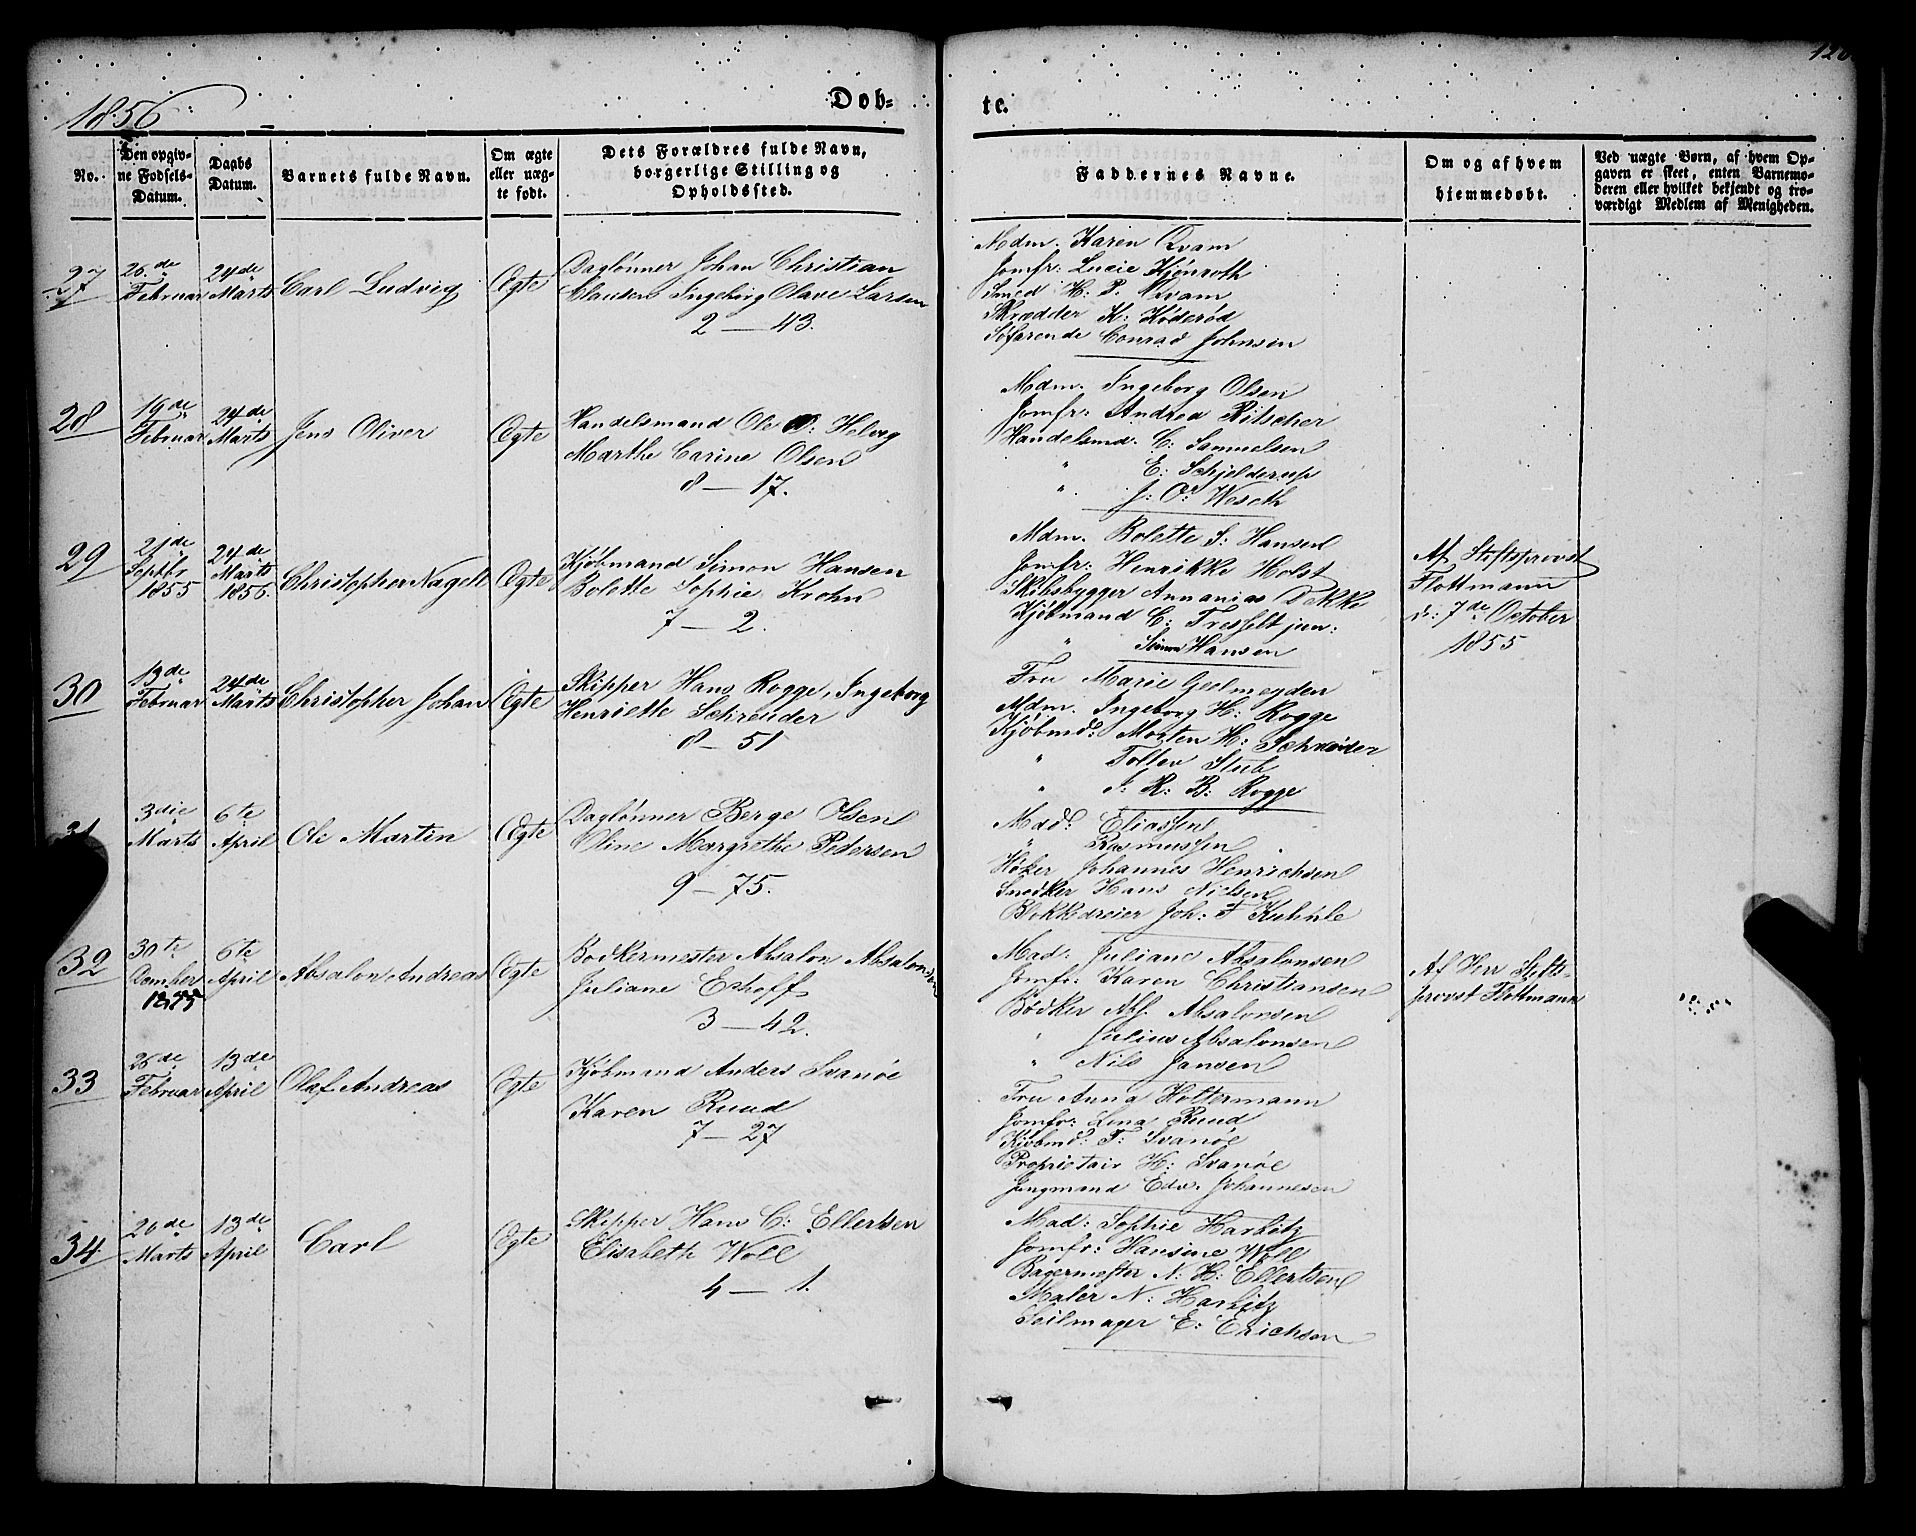 1856
Döb-
te.
No.
Den opgiv-
ne Fødsels-
Datum.
Daabs
Datum.
Barnets fulde Navn.
Om ægte
eller uæg-
te født.
Dets Forældres fulde Navn,
borgerlige Stilling og
Opholdssted.
Faddernes Navne.
Om og af hvem
hjemmedøbt.
Ved uægte Børn, af hvem Op-
gaven er skeet, enten Barnemo-
deren eller hvilket bekjendt og tro-
værdigt Medlem af Menigheden.
27
26.de
Februar
24de
Marts
Carl Ludvig
Ægte
Daglønner Johan Christian
Clausen Ingeborg Olave Larsen
2 — 43.
Mdm. Karen Qvam
Jomfr: Lucie
Smed H. P. Qvam
Skrædder K:
Søfarende Conrad Johnsen
28
19de
Februar
24de
Marts
Jens Oliver
Ægte
Handelsmand Ole Helvig
Marthe Carine Olsen
8 — 17.
Mdm. Ingeborg Olsen
Jomfr: Andrea Ritscher
Handelsmd. C: Samuelsen
" E: Schjelderup
" J: O: Weseth
29
21de
Septbr
1855
24de
Marts
1856.
Christopher Nagell
Ægte
Kjøbmand Simon Hansen
Bolette Sophie Krohn
7 — 2.
Mdm. Bolette S: Hansen
Jomfr: Henrikke Holst
Skibsbygger Annanias Dekke
Kjøbmand C: Tresselt jun:
" Simon Hansen
Af Stiftsprovst
Flottmann
d: 7de October
1855
30
13de
Februar
24de
Marts
Christopher Johan
Ægte
Skipper Hans Rogge, Ingeborg
Henriette Schreuder
8 — 51
Fru Marie Geelmeyden
Mdm. Ingeborg H: Rogge
Kjøbmd: Morten H: Schreuder
" Tollev Stub
" J: R: B: Rogge
31
3die
Marts
6te
April
Ole Martin
Ægte
Daglønner Berge Olsen
Oline Margrethe Pedersen
9 — 75.
Mad: Eliassen
" Rasmussen
Høker Johannes Henrichsen
Snedker Hans Nielsen
Blokkdreier Joh: F Kuhnle
32
30te
Dcmber
1855
6te
April
Absalon Andreas
Ægte
Bødkermester Absalon Absalonsen
Juliane Eshoff
3 — 42.
Mad: Juliane Absalonsen
Jomfr: Karen Christiansen
Bødker Abs. Absalonsen
" Julius Absalonsen
" Nils Jansen
Af Herr Stifts-
provst Flottmann
33
26de
Februar
13de
April
Olaf Andreas
Ægte
Kjøbmand Anders Svanöe
Karen Ruud
7 — 27
Fru Anna Holtermann
Jomfr: Lina Ruud
Kjøbmd: F: Svanöe
Proprietair H: Svanöe
Jungmand Edv. Johannesen
34
20de
Marts
13de
April
Carl
Ægte
Skipper Hans C: Ellertsen
Elisabeth Woll
4 — 1.
Mad: Sophie Harbitz
Jomfr: Hansine Woll
Bagermester N: H: Ellertsen
Maler N: Harbitz
Seilmager E: Erichsen